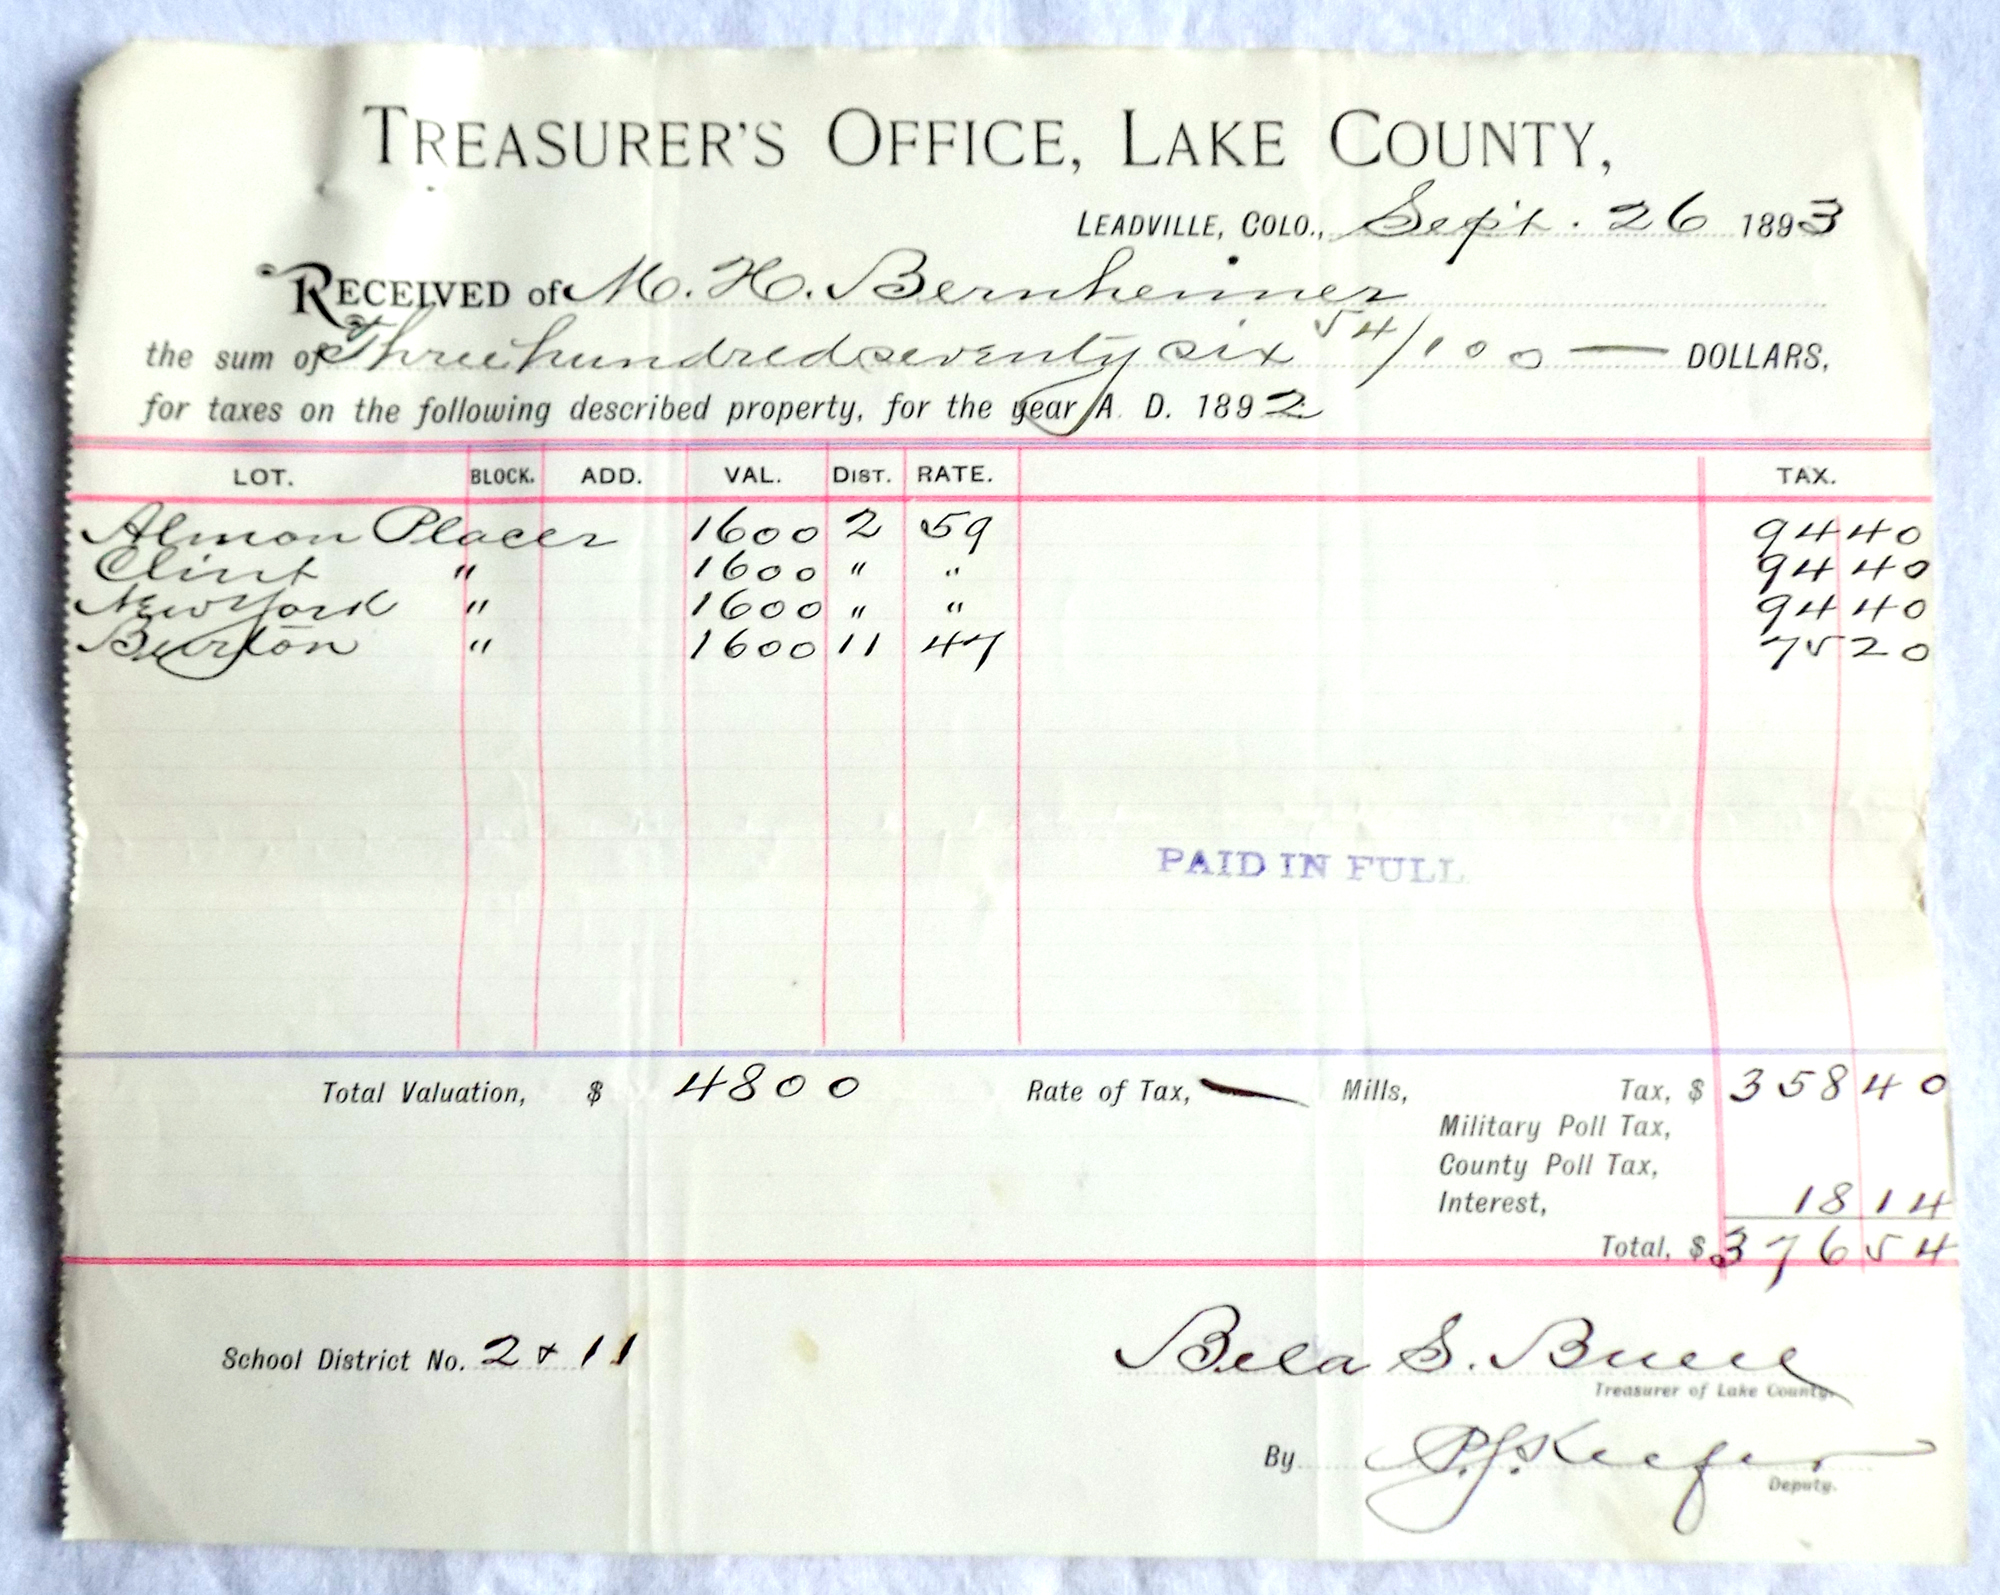 TREASURER'S OFFICE, LAKE COUNTY,
LEADVILLE, COLO., Sept. 26 1893
RECEIVED of M. H. Bernheimer
the sum of Three hundred seventy six 54/100 — DOLLARS,
for taxes on the following described property, for the year A. D. 1892
LOT. BLOCK. ADD. VAL. DIST. RATE. TAX.
Almon Placer 1600 2 59 94 40
Clint " 1600 " " 94 40
New York " 1600 " " 94 40
Burton " 1600 11 47 75 20
PAID IN FULL
Total Valuation, $ 4800 Rate of Tax, — Mills, Tax, $ 358 40
Military Poll Tax,
County Poll Tax,
Interest, 18 14
Total, $ 376 54
School District No. 2 & 11 Bela S. Buell
Treasurer of Lake County.
By P. J. Keefer
Deputy.